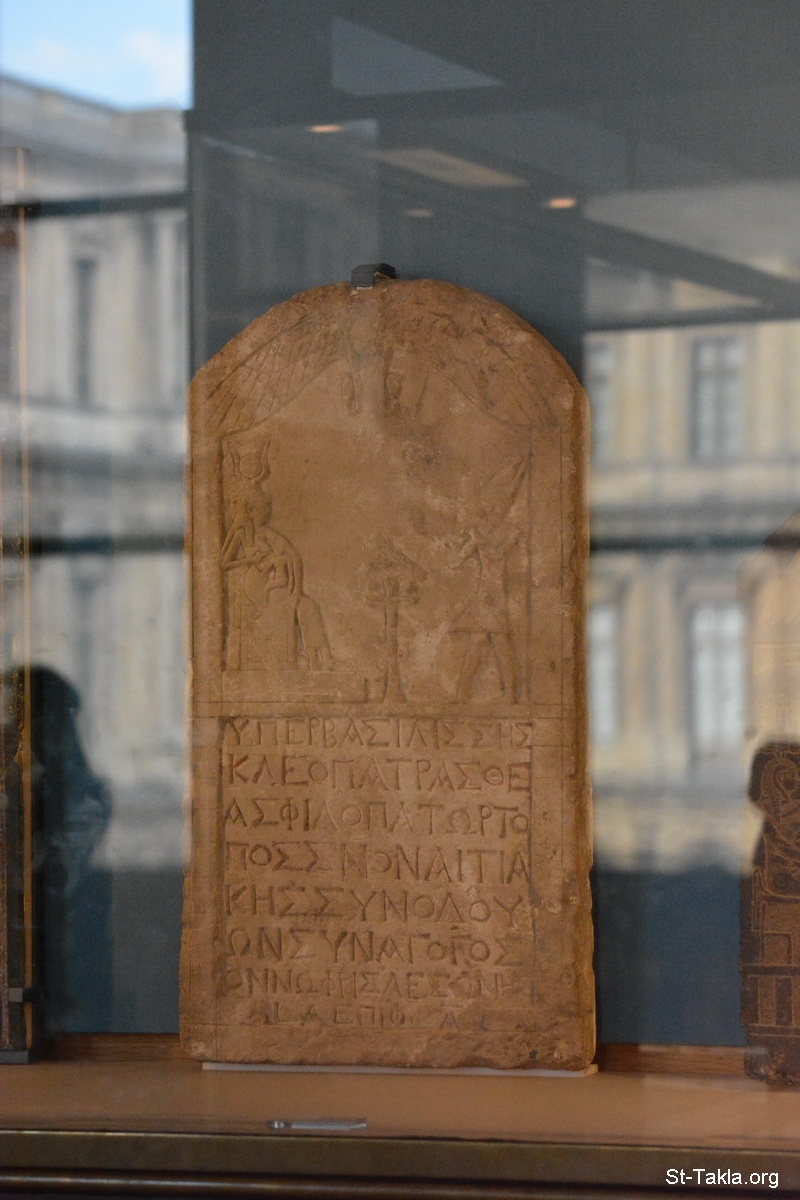 ΥΠΕΡΒΑΣΙΛΙΣΣΗΣ
ΚΛΕΟΠΑΤΡΑΣΘΕ
ΑΣΦΙΛΟΠΑΤΩΡΤΟ
ΠΟΣΣΝΟΝΑΙΤΙΑ
ΚΗΣΣΥΝΟΔΟΥ
ΩΝΣΥΝΑΓΟΓΟΣ
ΟΝΝΩΦΡΙΣΛΕΣΩΝΗ
St-Takla.org